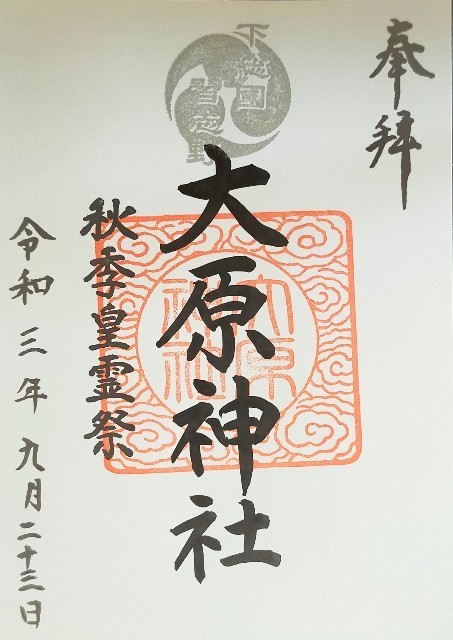 奉拝
下総国
習志野
大原神社
大原
神社
秋季皇霊祭
令和三年九月二十三日